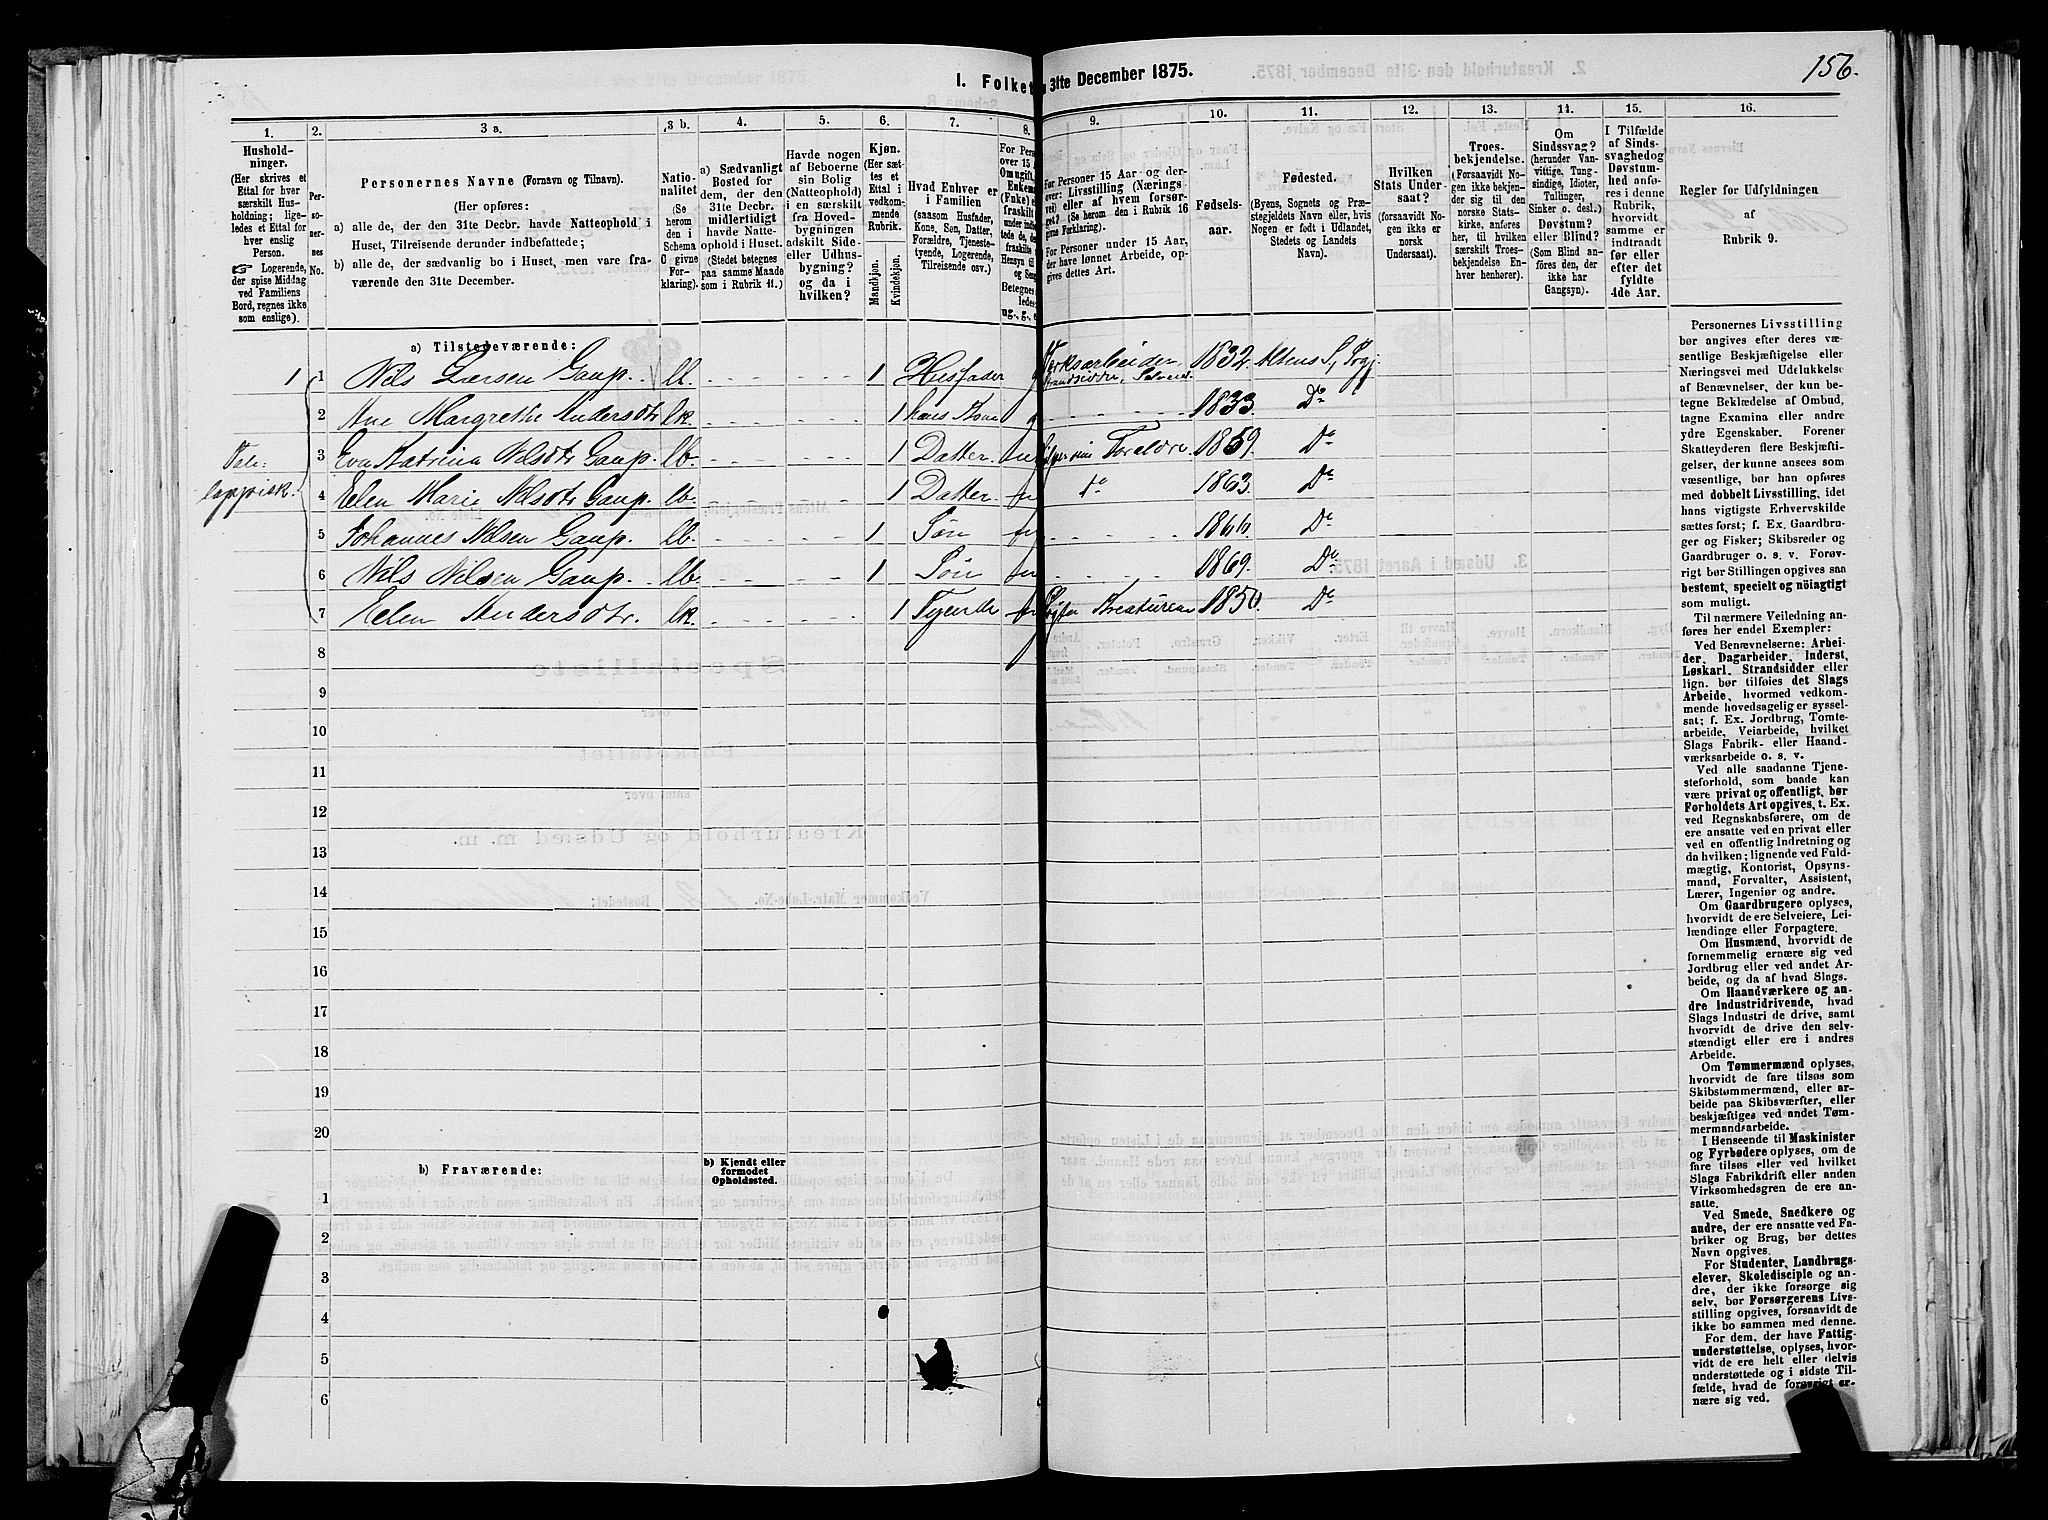 156.
I. Folket
31te December 1875.
1.
2.
3 a.
3 b.
4.
5.
6.
7.
8.
9.
10.
11.
12.
13.
14.
15.
16.
Hushold-
ninger.
(Her skrives et
Ettal for hver
særskilt Hus-
holdning; lige-
ledes et Ettal for
hver enslig
Person.
☞ Logerende,
der spise Middag
ved Familiens
Bord, regnes ikke
som enslige).
Per-
so-
ner-
nes
No.
Personernes Navne (Fornavn og Tilnavn).
(Her opføres:
a) alle de, der den 31te Decbr. havde Natteophold i
Huset, Tilreisende derunder indbefattede;
b) alle de, der sædvanlig bo i Huset, men vare fra-
værende den 31te December.
Natio-
nalitet
(Se
herom
den i
Schema
C givne
For-
klaring).
a) Sædvanligt
Bosted for
dem, der den
31te Decbr.
midlertidigt
havde Natte-
ophold i Huset.
(Stedet betegnes
paa samme Maade
som i Rubrik 11.)
Havde nogen
af Beboerne
sin Bolig
(Natteophold)
i en særskilt
fra Hoved-
bygningen
adskilt Side-
eller Udhus-
bygning?
og da i
hvilken?
Kjøn.
(Her sæt-
tes et
Ettal i
vedkom-
mende
Rubrik.
Mandkjøn.
Kvindekjøn.
Hvad Enhver er
i Familien
(saasom Husfader,
Kone, Søn, Datter,
Forældre, Tjeneste-
tyende, Logerende,
Tilreisende osv.)
For Personer 15 Aar og der-
over: Livsstilling (Nærings-
vei) eller af hvem forsør-
get? (Se herom den i Rubrik 16
givne Forklaring).
For Personer under 15 Aar,
der have lønnet Arbeide, op-
gives dettes Art.
Fødsels-
aar.
Fødested.
(Byens, Sognets og Præ-
stegjeldets Navn eller, hvis
Nogen er født i Udlandet,
Stedets og Landets
Navn).
Hvilken
Stats Under-
saat?
(forsaavidt No-
gen ikke er
norsk
Undersaat).
Troes-
bekjendelse.
(Forsaavidt No-
gen ikke bekjen-
der sig til den
norske Stats-
kirke, anføres
her, til hvilken
særskilt Troes-
bekjendelse En-
hver henhører).
Om
Sindssvag?
(herunder Van-
vittige, Tung-
sindige, Idioter,
Tullinger,
Sinker o. desl.)
Døvstum?
eller Blind?
(Som Blind an-
føres den, der
ikke har
Gangsyn).
I Tilfælde
af Sinds-
svaghed og
Døvstum-
hed anfø-
res i denne
Rubrik,
hvorvidt
samme er
indtraadt
før eller
efter det
fyldte
4de Aar.
Regler for Udfyldningen
af
Rubrik 9.
a) Tilstedeværende:
1 1 Nils Larsen Gaup. ll. 1 Husfader g 1832. Altens S.,
2 Ane Margrethe Andersdtr lk. 1 hans Kone g 1833. Do
3 Eva Katrina Nilsdtr Gaup. lb. 1 Datter. Foreldre. 1859. Do
4 Elen Marie Nilsdtr Gaup. lb. 1 Datter. do 1863. Do
5 Johannes Nilsen Gaup. lb. 1 Søn 1866. Do
6 Nils Nilsen Gaup. lb. 1 Søn 1869. Do
7 Elen Andersdtr. lk. 1 Tyende Kreaturene 1850. Do
Tale:
lappisk.
8
9
10
11
12
13
14
15
16
17
18
19
20
b) Fraværende:
b) Kjendt eller
formodet
Opholdssted.
1
2
3
4
5
6
Personernes Livsstilling
bør angives efter deres væ-
sentlige Beskjæftigelse eller
Næringsvei med Udelukkelse
af Benævnelser, der kun be-
tegne Beklædelse af Ombud,
tagne Examina eller andre
ydre Egenskaber. Forener
Skatteyderen flere Beskjæfti-
gelser, der kunne ansees som
væsentlige, bør han opføres
med dobbelt Livsstilling, idet
hans vigtigste Erhvervskilde
sættes først; f. Ex. Gaardbru-
ger og Fisker; Skibsreder og
Gaardbruger o. s. v. Forøv-
rigt bør Stillingen opgives saa
bestemt, specielt og nöiagtigt
som muligt.
Til nærmere Veiledning an-
føres her endel Exempler:
Ved Benævnelserne: Arbei-
der, Dagarbeider, Inderst,
Løskarl, Strandsidder eller
lign. bør tilføies det Slags
Arbeide, hvormed vedkom-
mende hovedsagelig er syssel-
sat; f. Ex. Jordbrug, Tomte-
arbeide, Veiarbeide, hvilket
Slags Fabrik- eller Haand-
værksarbeide o. s. v.
Ved alle saadanne Tjene-
steforhold, som baade kan
være privat og offentligt, bør
Forholdets Art opgives, t. Ex.
ved Regnskabsførere, om de
ere ansatte ved en privat eller
ved en offentlig Indretning og
da hvilken; lignende ved Fuld-
mægtig, Kontorist, Opsyns-
mand, Forvalter, Assistent,
Lærer, Ingeniør og andre.
Om Gaardbrugere oplyses,
hvorvidt de ere Selveiere, Lei-
lændinge eller Forpagtere.
Om Husmænd, hvorvidt de
fornemmelig ernære sig ved
Jordbrug eller ved andet Ar-
beide, og da af hvad Slags.
Om Haandværkere og an-
dre Industridrivende, hvad
Slags Industri de drive, samt
hvorvidt de drive den selv-
stændigt eller ere i andres
Arbeide.
Om Tømmermænd oplyses,
hvorvidt de fare tilsøs som
Skibstømmermænd, eller ar-
beide paa Skibsværfter, eller
beskjæftiges ved andet Tøm-
mermandsarbeide.
I Henseende til Maskinister
og Fyrbødere oplyses, om de
fare tilsøs eller ved hvilket
Slags Fabrikdrift eller anden
Virksomhedsgren de ere an-
satte.
Ved Smede, Snedkere og
andre, der ere ansatte ved Fa-
briker og Brug, bør dettes
Navn opgives.
For Studenter, Landbrugs-
elever, Skoledisciple og an-
dre, der ikke forsørge sig
selv, bør Forsørgerens Livs-
stilling opgives, forsaavidt de
ikke bo sammen med denne.
For dem, der have Fattig-
understøttelse, oplyses, hvor-
vidt de ere helt eller delvis
understøttede og i sidste Til-
fælde, hvad de forøvrigt er-
nære sig ved.